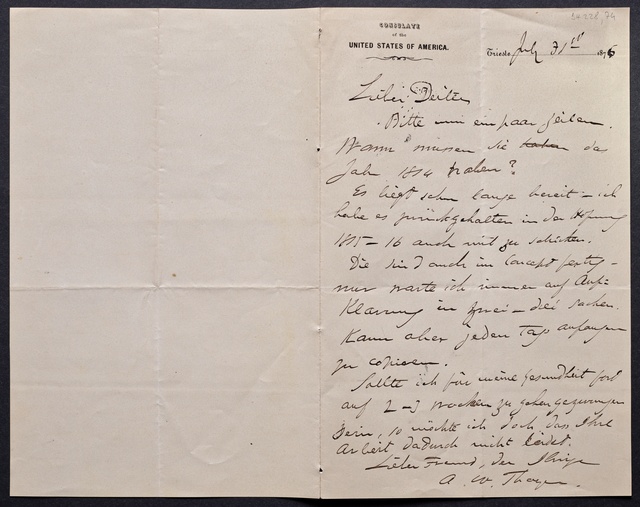 CONSULATE
of the
UNITED STATES OF AMERICA.
Trieste July 31st 1876
Lieber Deiters
Bitte nur ein paar Zeilen.
Wann müssen Sie haben das
Jahr 1814 haben?
Es liegt schon lange bereit – ich
habe es zurückgehalten in der Hofnung
1815–16 auch mit zu schicken.
Die sind auch im Concept fertig –
nur warte ich immer auf Auf-
klärung in zwei – drei Sachen.
Kann aber jeden Tag anfangen
zu copieren.
Sollte ich für meine Gesundheit fort
auf 2–3 Wochen zu gehen gezwungen
sein, so möchte ich doch dass Ihre
Arbeit dadurch nicht leidet.
Lieber Freund, der Ihrige
A. W. Thayer.